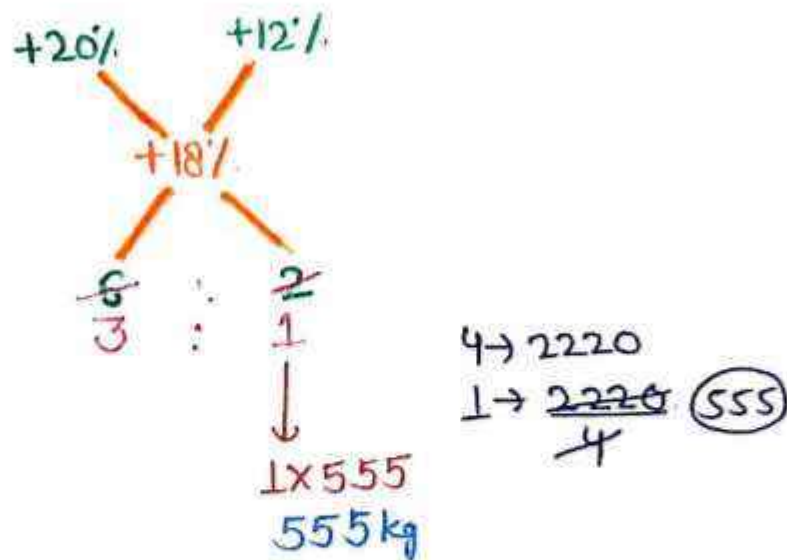 +20% +12%
+18%
6 : 2
3 : 1
4→ 2220
1→ 2220 555
4
1×555
555kg